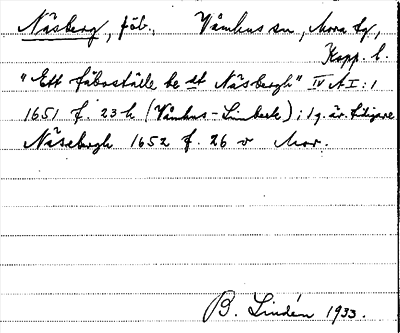 Näsberg, fäb., Våmhus sn, Mora tg,
Kopp. l.
"Ett fäboställe be.et Näsbergh" IV A I: 1
1651 f. 23 h (Våmhus - Limbeck); 1 g. är. tidigare
Näsebergh 1652 f. 26 v Mor.
B. Lindén 1933.